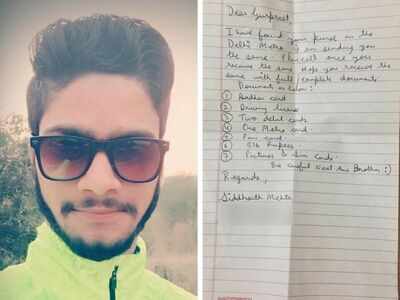 Dear Gurpreet,
I have found your purse in the
Delhi Metro. I am sending you
the same. Please call once you
receive the same. Hope you receive the
same with full / complete documents.
Documents as below:
① Aadhar card
② Driving license
③ Two debit cards
④ One Metro card
⑤ Pan card
⑥ Rupees
⑦ Pictures & sim cards
Be careful next time Brother :)
Regards,
Siddharth Mehta